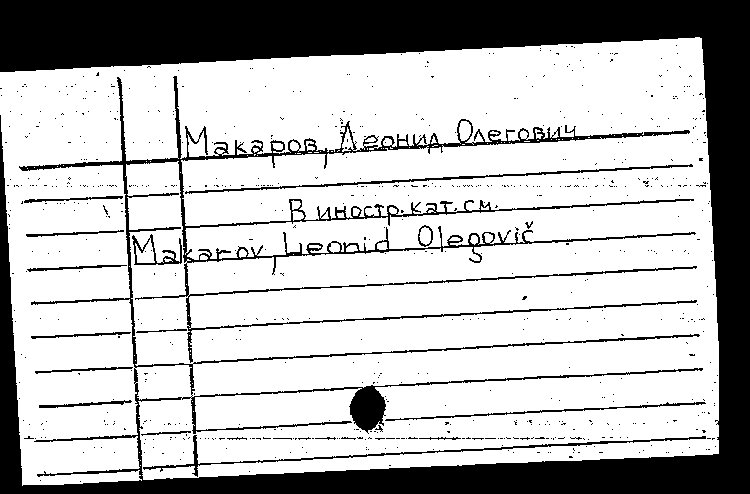 Макаров, Леонид Олегович
В иностр. кат. см.
Makarov, Leonid Olegovič